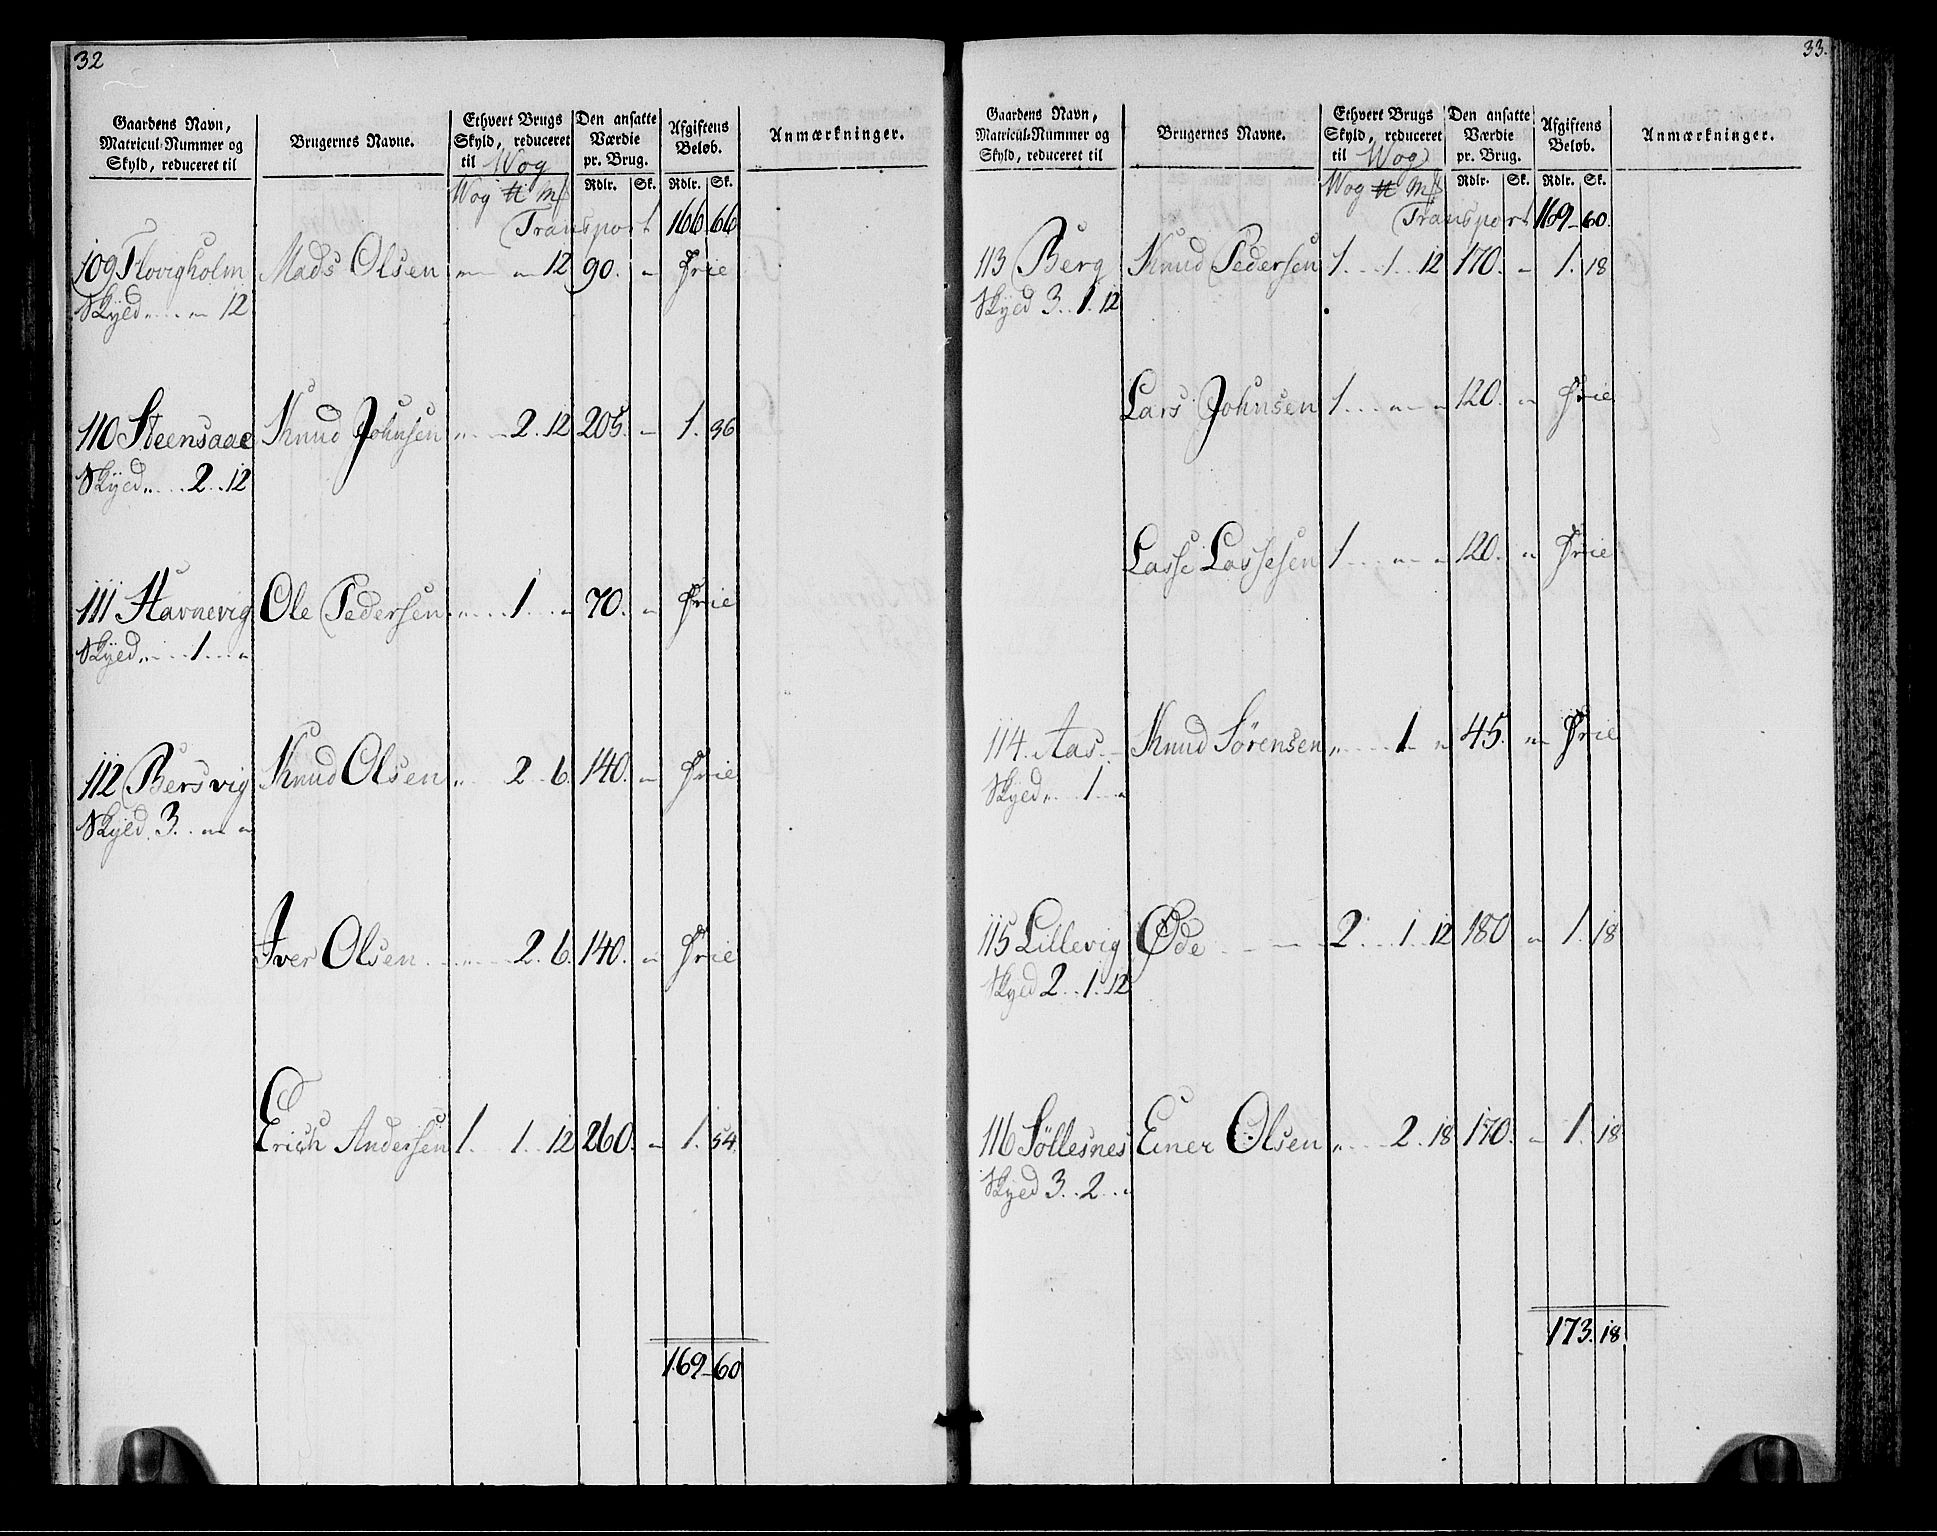 32
Gaardens Navn, Matricul-Nummer og Skyld, reduceret til
Brugernes Navne.
Ethvert Brugs Skyld, reduceret til Wog
Den ansatte Værdie pr. Brug.
Afgiftens Beløb.
Anmærkninger.
Wog ℔ mſ Rdlr. Sk. Rdlr. Sk.
Transport 166 66
109 Flovigholm Mads Olsen „ „ 12 90. „ Frie
Skyld „ „ 12
110 Steensaae Knud Johnsen „ 2. 12 205. „ 1. 36
Skyld „ 2. 12
111 Havnevig Ole Pedersen „ 1 „ 70. „ Frie
Skyld „ 1 „
112 Bersvig Knud Olsen „ 2. 6. 140. „ Frie
Skyld 3. „ „
Iver Olsen „ 2. 6. 140. „ Frie
Erich Andersen 1. 1. 12 260. „ 1. 54.
169 60
33.
Gaardens Navn, Matricul-Nummer og Skyld, reduceret til
Brugernes Navne.
Ethvert Brugs Skyld, reduceret til Wog
Den ansatte Værdie pr. Brug.
Afgiftens Beløb.
Anmærkninger.
Wog ℔ mſ Rdlr. Sk. Rdlr. Sk.
Transport 169 60.
113 Berg Knud Pedersen 1. 1. 12 170. „ 1. 18
Skyed 3. 1. 12
Lars Johnsen 1. „ „ 120. „ Frie
Lasse Lassesen 1. „ „ 120. „ Frie
114. Aas. Knud Sörensen „ 1 „ 45. „ Frie
Skyed „ 1 „
115 Lillevig Øde 2. 1. 12 180 „ 1. 18
Skyed 2. 1. 12
116 Söllesnes Einer Olsen „ 2. 18 170. „ 1. 18
Skyed 3. 2. „
173. 18